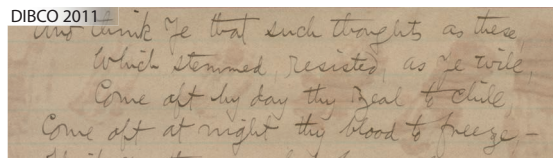 DIBCO 2011
And think Ye that such thoughts as these
Which stemmed, resisted, as ye will,
Come oft by day thy zeal to chill
Come oft at night thy blood to freeze –